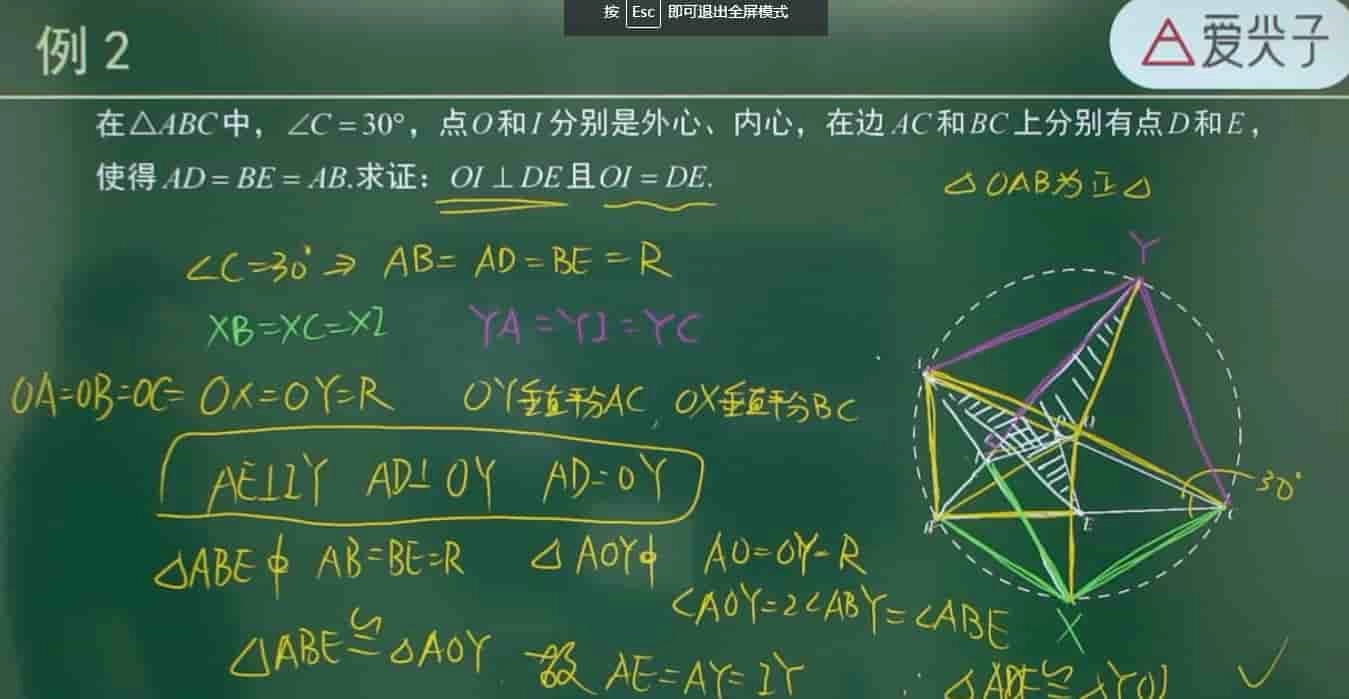 按 Esc 即可退出全屏模式
例2
爱尖子
在△ABC中，∠C=30°，点O和I分别是外心、内心，在边AC和BC上分别有点D和E，
使得AD=BE=AB.求证：OI⊥DE且OI=DE.
△OAB为正△
∠C=30°⇒ AB=AD=BE=R
XB=XC=XI YA=YI=YC
OA=OB=OC=OX=OY=R OY垂直平分AC，OX垂直平分BC
AE⊥IY AD⊥OY AD=OY
△ABE中 AB=BE=R △AOY中 AO=OY=R
∠AOY=2∠ABY=∠ABE
△ABE≌△AOY 故 AE=AY=IY
∴△ADE≌△YOI
Y
30°
C
E
X